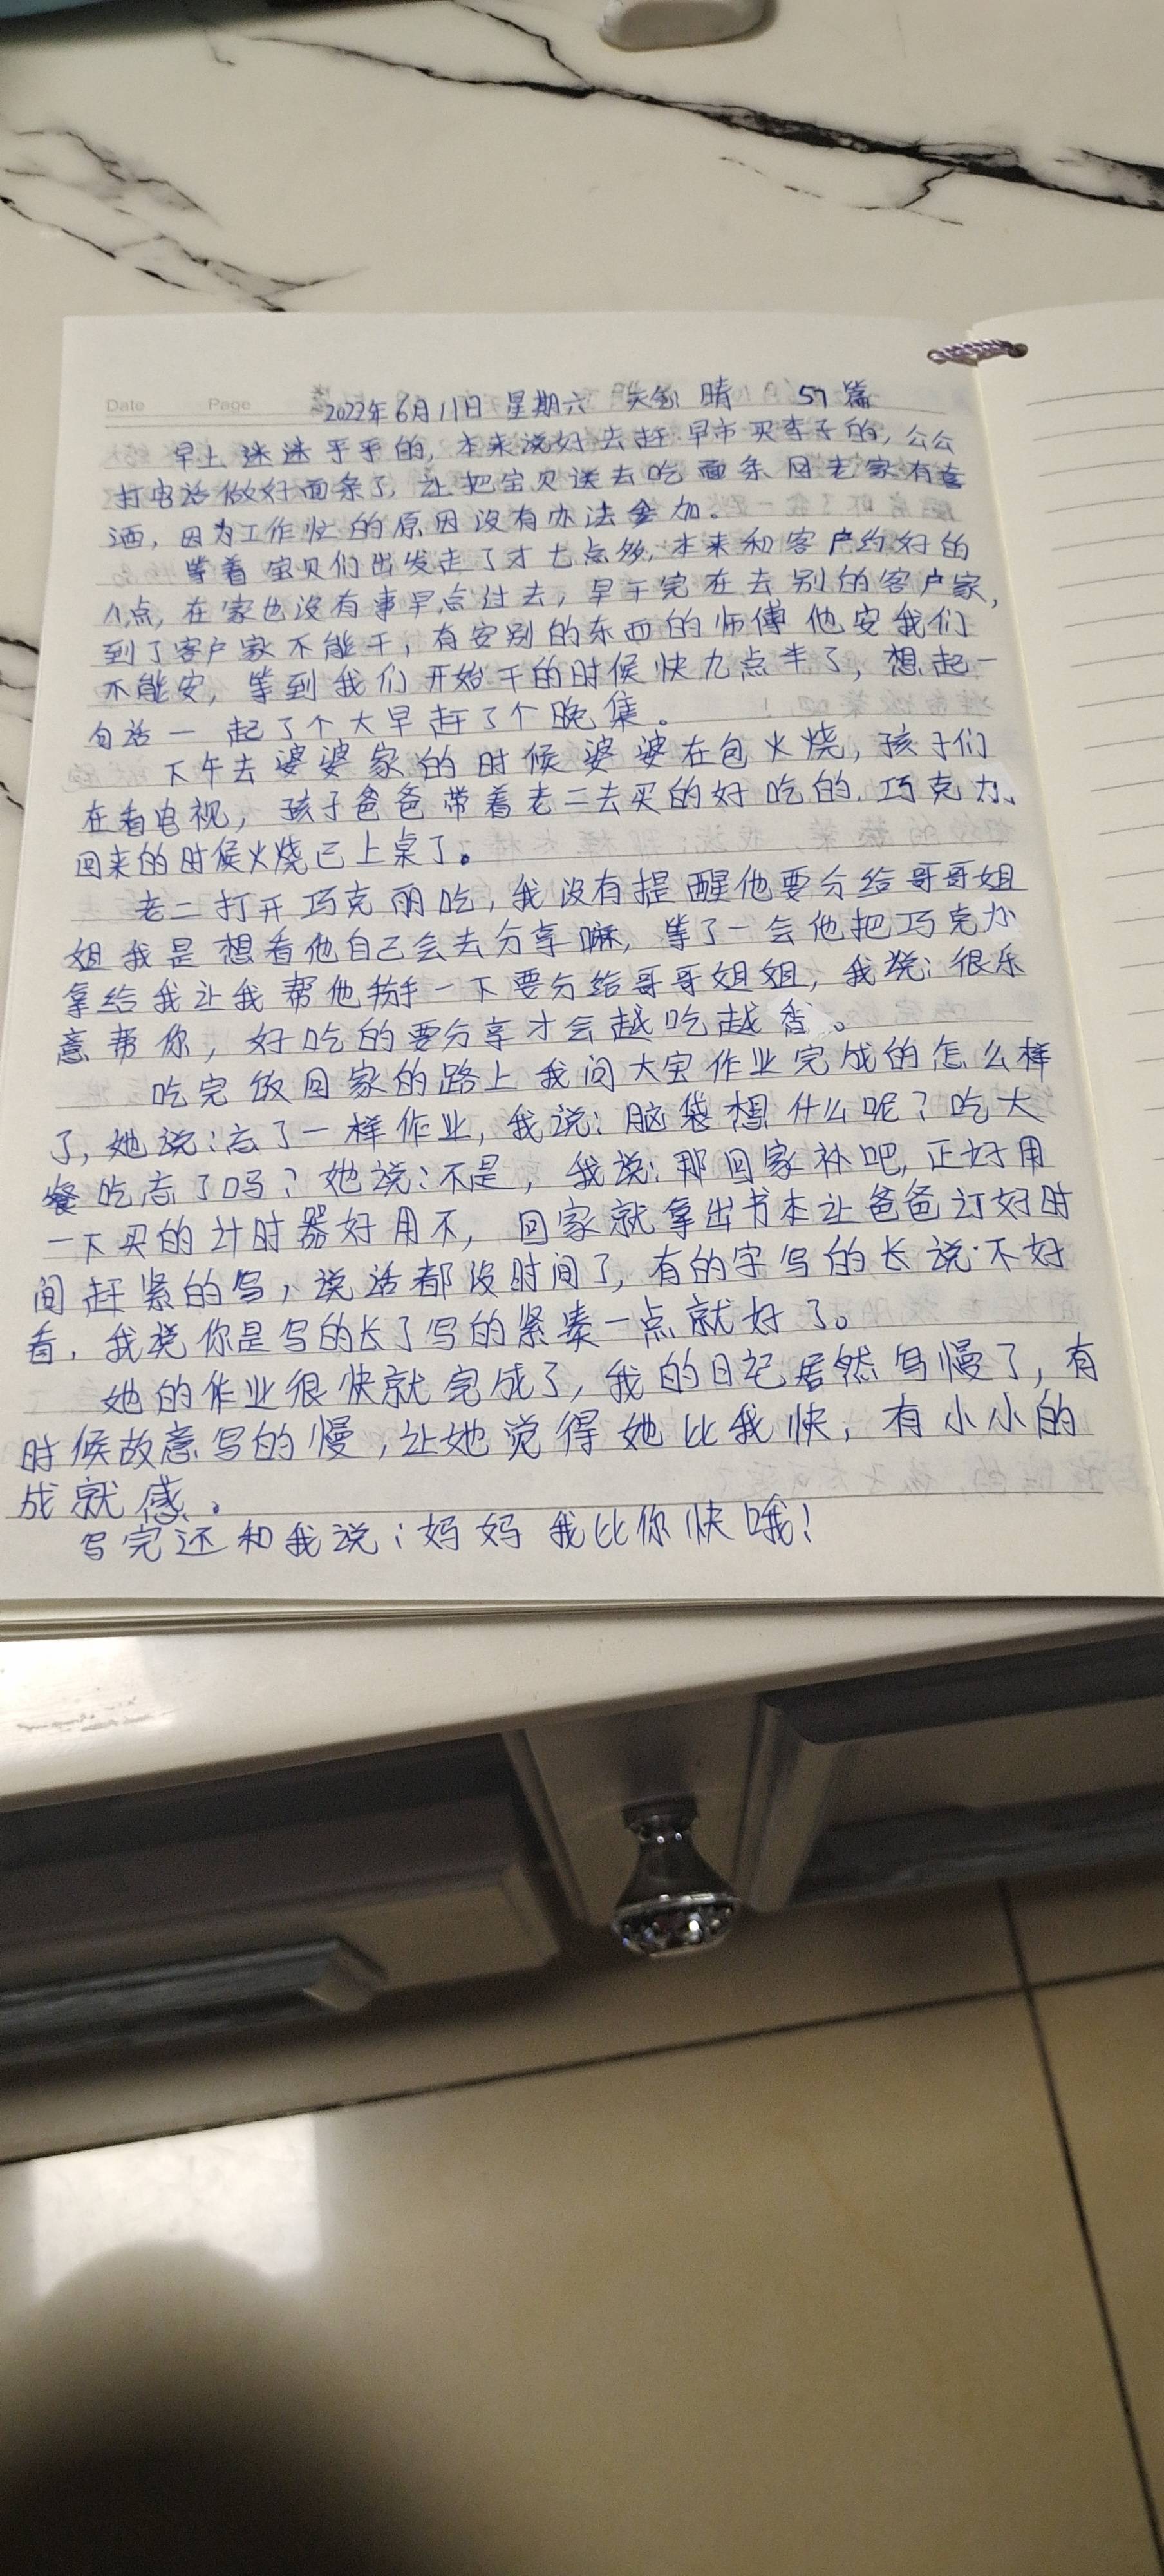 Date Page
2022年6月11日 星期六 天气 晴 57篇
早上迷迷乎乎的,本来说好去赶早市买李子的,公公
打电话做好面条了,让把宝贝送去吃面条回老家有喜
酒,因为工作忙的原因没有办法参加。
等着宝贝们出发走了才七点多,本来和客户约好的
八点,在家也没有事早点过去,早干完在去别的客户家,
到了客户家不能干,有安别的东西的师傅他安我们
不能安,等到我们开始干的时候快九点半了,想起一
句话一起了个大早赶了个晚集。
下午去婆婆家的时候婆婆在包火烧,孩子们
在看电视,孩子爸爸带着老二去买的好吃的.巧克力、
回来的时候火烧已上桌了。
老二打开巧克丽吃,我没有提醒他要分给哥哥姐
姐我是想看他自己会去分享嘛,等了一会他把巧克力
拿给我让我帮他掰一下要分给哥哥姐姐,我说:很乐
意帮你,好吃的要分享才会越吃越香。
吃完饭回家的路上我问大宝作业完成的怎么样
了,她说:忘了一样作业,我说:脑袋想什么呢?吃大
餐吃忘了吗?她说:不是,我说:那回家补吧,正好用
一下买的计时器好用不,回家就拿出书本让爸爸订好时
间赶紧的写,说话都没时间了,有的字写的长说:不好
看,我说你是写的长了写的紧凑一点就好了。
她的作业很快就完成了,我的日记居然写慢了,有
时候故意写的慢,让她觉得她比我快,有小小的
成就感。
写完还和我说:妈妈我比你快哦!